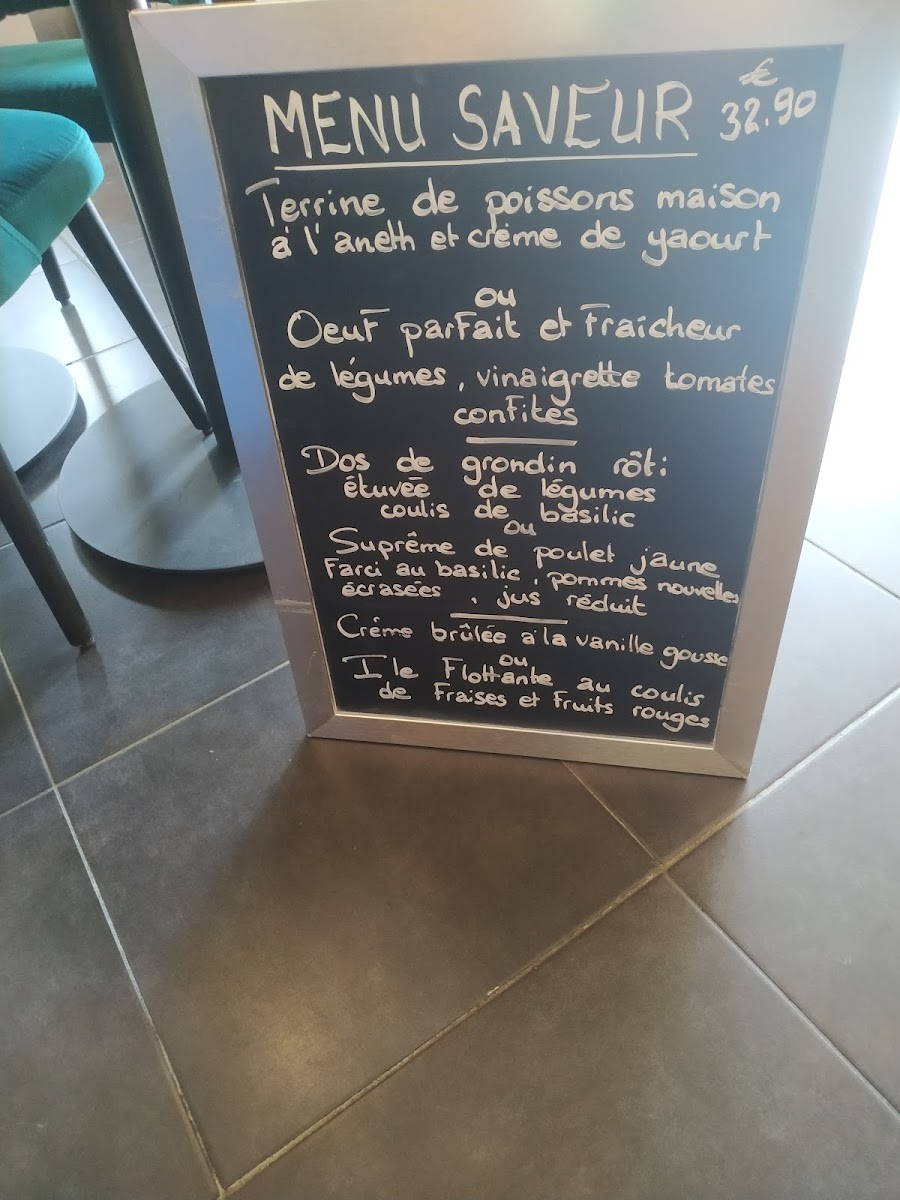 MENU SAVEUR € 32.90
Terrine de poissons maison
à l'aneth et crème de yaourt
ou
Oeuf parfait et fraîcheur
de légumes, vinaigrette tomates
confites
Dos de grondin rôti
étuvée de légumes
coulis de basilic
ou
Suprême de poulet jaune
Farci au basilic, pommes nouvelles
écrasées, jus réduit
Crème brûlée à la vanille gousse
ou
Ile Flottante au coulis
de Fraises et Fruits rouges